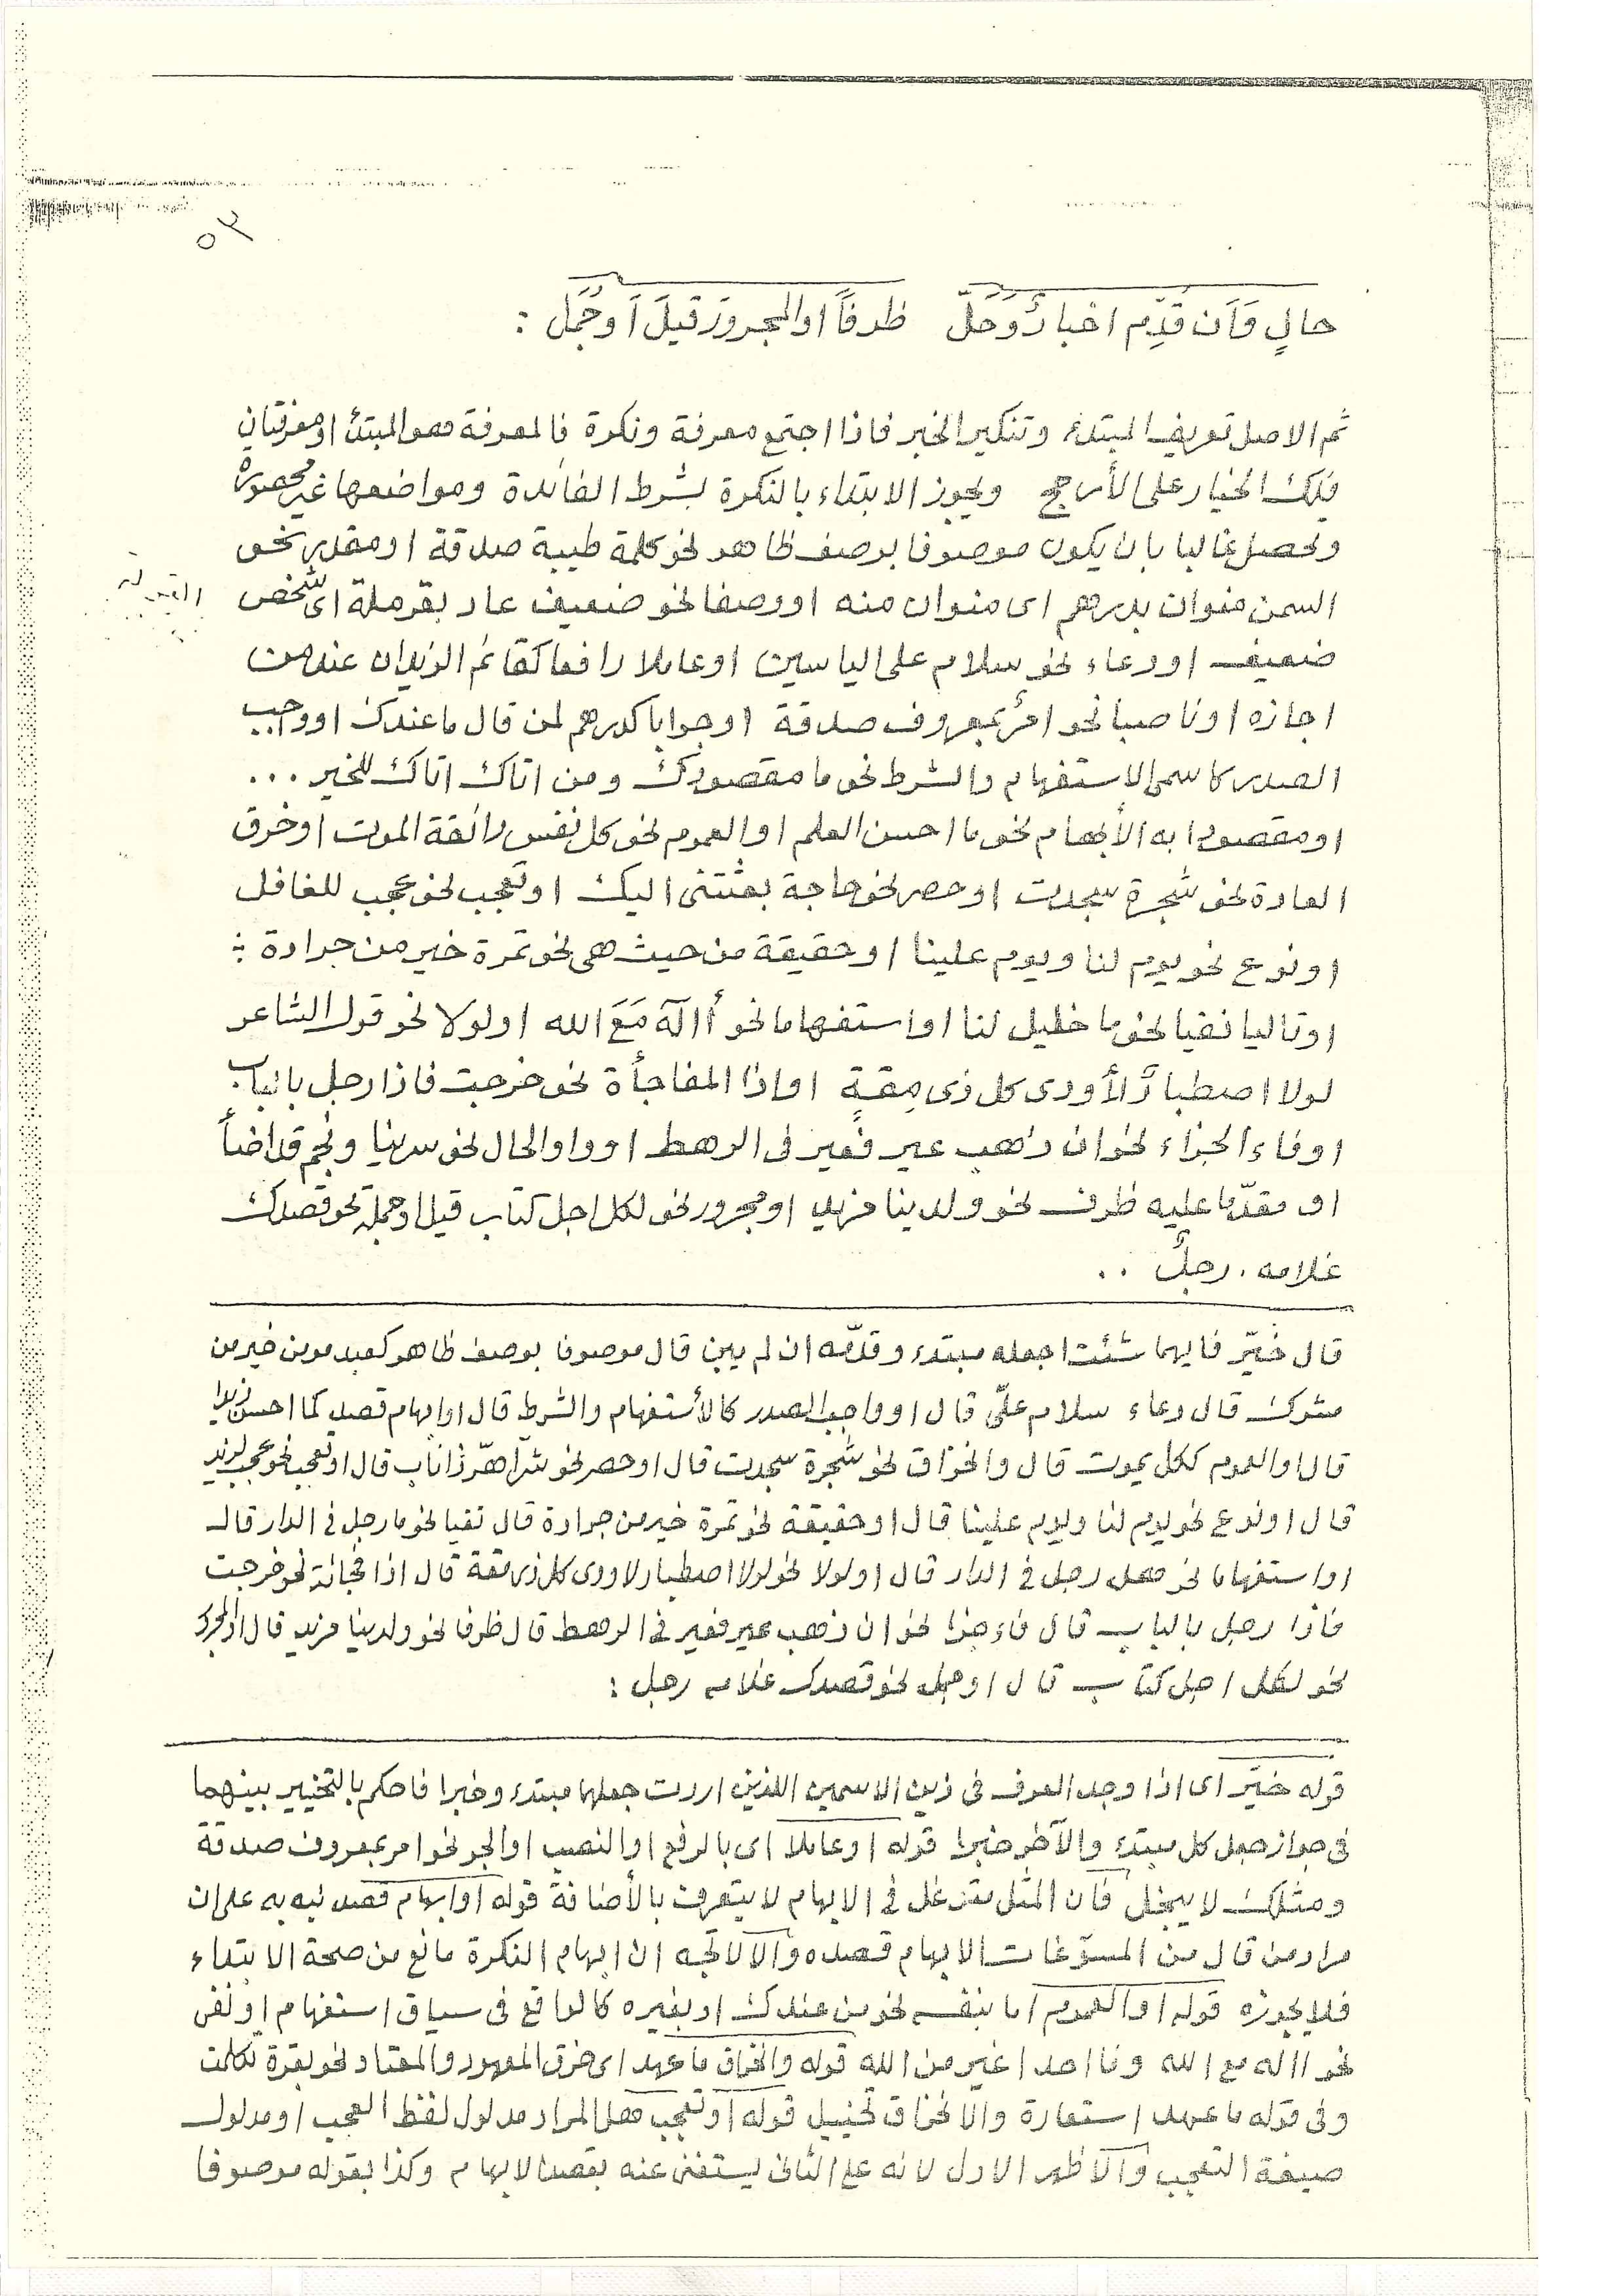 ٥٣
حالٍ وَاَن قُدِّم اخبارٌ وَحَلّ ظرفًا او المجرورَ قيلَ اَو جُمَل :
ثم الاصل تعريف المبتدء وتنكير الخبر فاذا اجتمع معرفة ونكرة فالمعرفة هو المبتدأ او معرفتان
فلك الخيار على الأرجح ويجوز الابتداء بالنكرة بشرط الفائدة ومواضعها غير محصورة
وتحصل غالبا بان يكون موصوفا بوصف ظاهر نحو كلمة طيبة صدقة او مقدر نحو
السمن منوان بدرهم اى منوان منه او وصفا نحو ضعيف عاد بقرملة اى شخص
ضعيف او دعاء نحو سلام على الياسين او عاملا رافعا كقائم الزيدان عند من
اجازه او ناصبا نحو امرٌ بمعروف صدقة او جوابا كدرهم لمن قال ما عندك او واجب
الصدر كاسمى الاستفهام والشرط نحو ما مقصودك ومن اتاك اتاك للخير ...
او مقصودا به الأبهام نحو ما احسن العلم او العموم نحو كل نفس ذائقة الموت او خرق
العادة نحو شجرة سجدت او حصر نحو حاجة بعثتنى اليك او تعجب نحو عجب للغافل
او نوع نحو يوم لنا ويوم علينا او حقيقة من حيث هى نحو تمرة خير من جرادة :
او تاليا نفيا نحو ما خليل لنا او استفهاما نحو أاله مَعَ الله او لولا نحو قول الشاعر
لولا اصطبارٌ لأودى كل ذى مِقةٍ او اذا المفاجأة نحو خرجت فاذا رجل بالباب
او فاء الجزاء نحو ان ذهب عير فعير فى الرهط او واو الحال نحو سرينا ونجم قد اضأ
او مقدّما عليه ظرف نحو ولدينا مزيد او مجرور نحو لكل اجل كتاب قيل او جملة نحو قصدك
غلامه رجلٌ ..
قال خيّر فايهما شئت اجعله مبتدء وقدّمه ان لم يبن قال موصوفا بوصف ظاهر كعبد مومن خير من
مشرك قال دعاء سلام علىّ قال او واجب الصدر كالأستفهام والشرط قال او ابهام قصد كما احسن زيدا
قال او العموم ككل يموت قال والخراق نحو شجرة سجدت قال او حصر نحو شر اهرّ ذا ناب قال او تعجب نحو عجب لزيد
قال او نوع نحو يوم لنا ويوم علينا قال او حقيقة نحو تمرة خير من جرادة قال نفيا نحو ما رجل فى الدار قال
او استفهاما نحو هل رجل فى الدار قال او لولا نحو لولا اصطبار لاودى كل ذى مقة قال اذا فجائة نحو خرجت
فاذا رجل بالباب قال فاء جزا نحو ان ذهب عير فعير فى الرهط قال ظرفا نحو ولدينا مزيد قال او المجرور
نحو لكل اجل كتاب قال او جمل نحو قصدك غلامه رجل :
قوله خيّر اى اذا وجد العرف فى ذين الاسمين اللذين اردت جعلهما مبتدء وخبرا فاحكم بالتخيير بينهما
فى جواز جعل كل مبتدء والآخر خبرا قوله او عاملا اى بالرفع او النصب او الجر نحو امر بمعروف صدقة
ومثلك لا يبخل فان المثل متوغل فى الابهام لا يتعرف بالأضافة قوله او ابهام قصد نبه به على ان
مراد من قال من المسوّغات الابهام قصده والا لاتجه ان ابهام النكرة مانع من صحة الابتداء
فلا يجوزه قوله او العموم اما بنفسه نحو من عندك او بغيره كالواقع فى سياق استفهام او نفى
نحو االه مع الله وما احد اغير من الله قوله والخراق ما عهد اى خرق المعهود والمعتاد نحو بقرة تكلمت
وفى قوله ما عهد استعارة والانخراق تخييل قوله او تعجب هل المراد مدلول لفظ العجب او مدلول
صيغة التعجب والاظهر الاول لانه على الثانى يستغنى عنه بقصد الابهام وكذا بقوله موصوفا